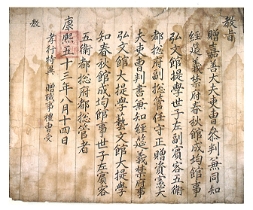 教旨
贈嘉善大夫吏曹參判兼同知
經筵義禁府春秋館成均館事
弘文館提學世子左副賓客五衛
都摠府副摠管任守正贈資憲大
夫吏曹判書兼知經筵義禁府事
弘文館大提學藝文館大提學
知春秋館成均館事世子左賓客
五衛都摠府都摠管者
康熙五十三年八月十四日
孝行特異贈職事
教